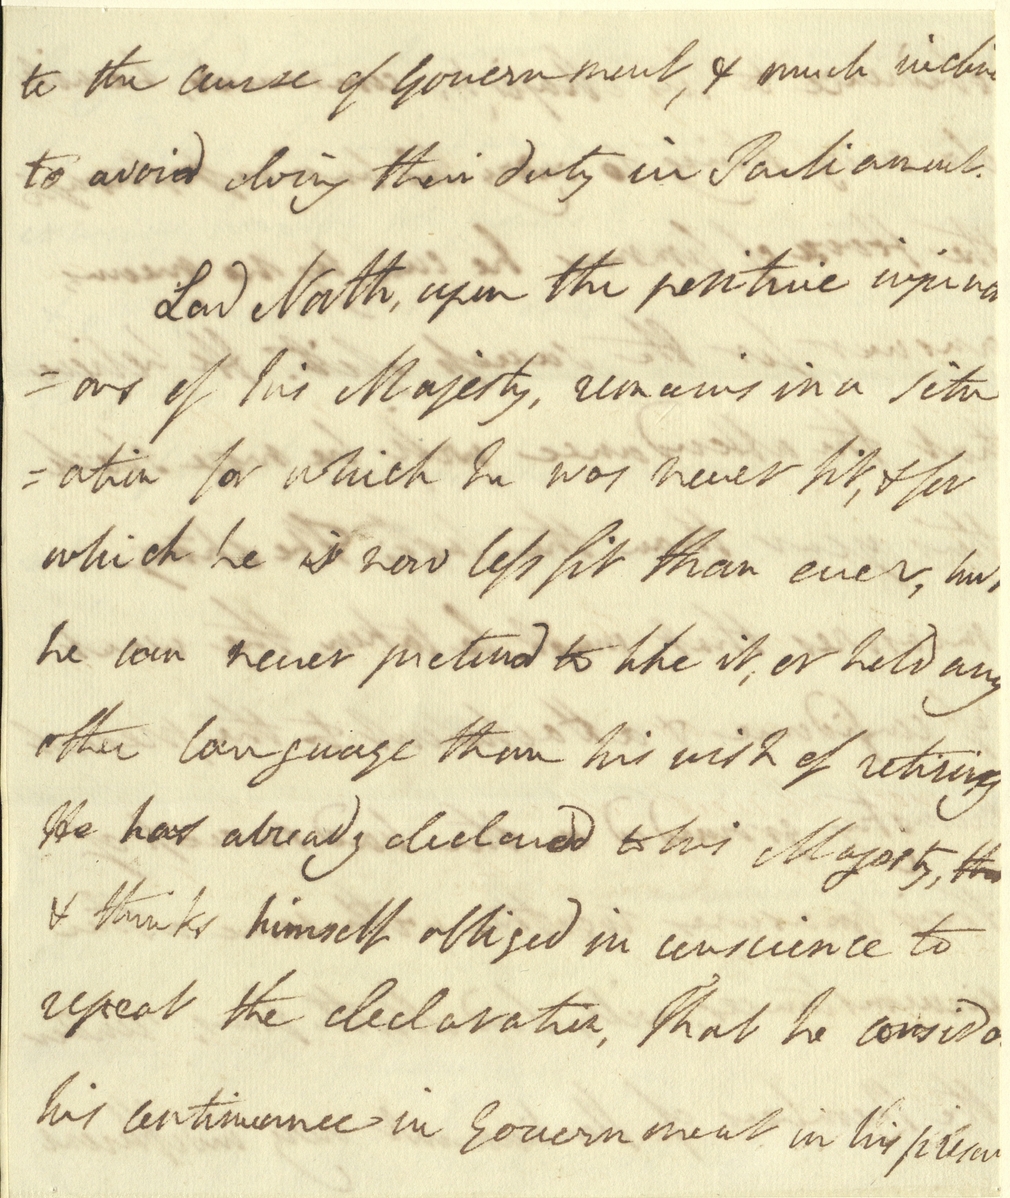 to the cause of Government, & much incline
to avoid doing their duty in Parliament.
Lord North, upon the positive injunc
=ons of his Majesty, remains in a situ
=ation for which he was never fit, & for
which he is now less fit than ever, but
he can never pretend to like it, or hold any
other language than his wish of retiring
He has already declared to his Majesty, tha
& thinks himself obliged in conscience to
repeat the declaration, That he consider
his continuance in Government in his presen